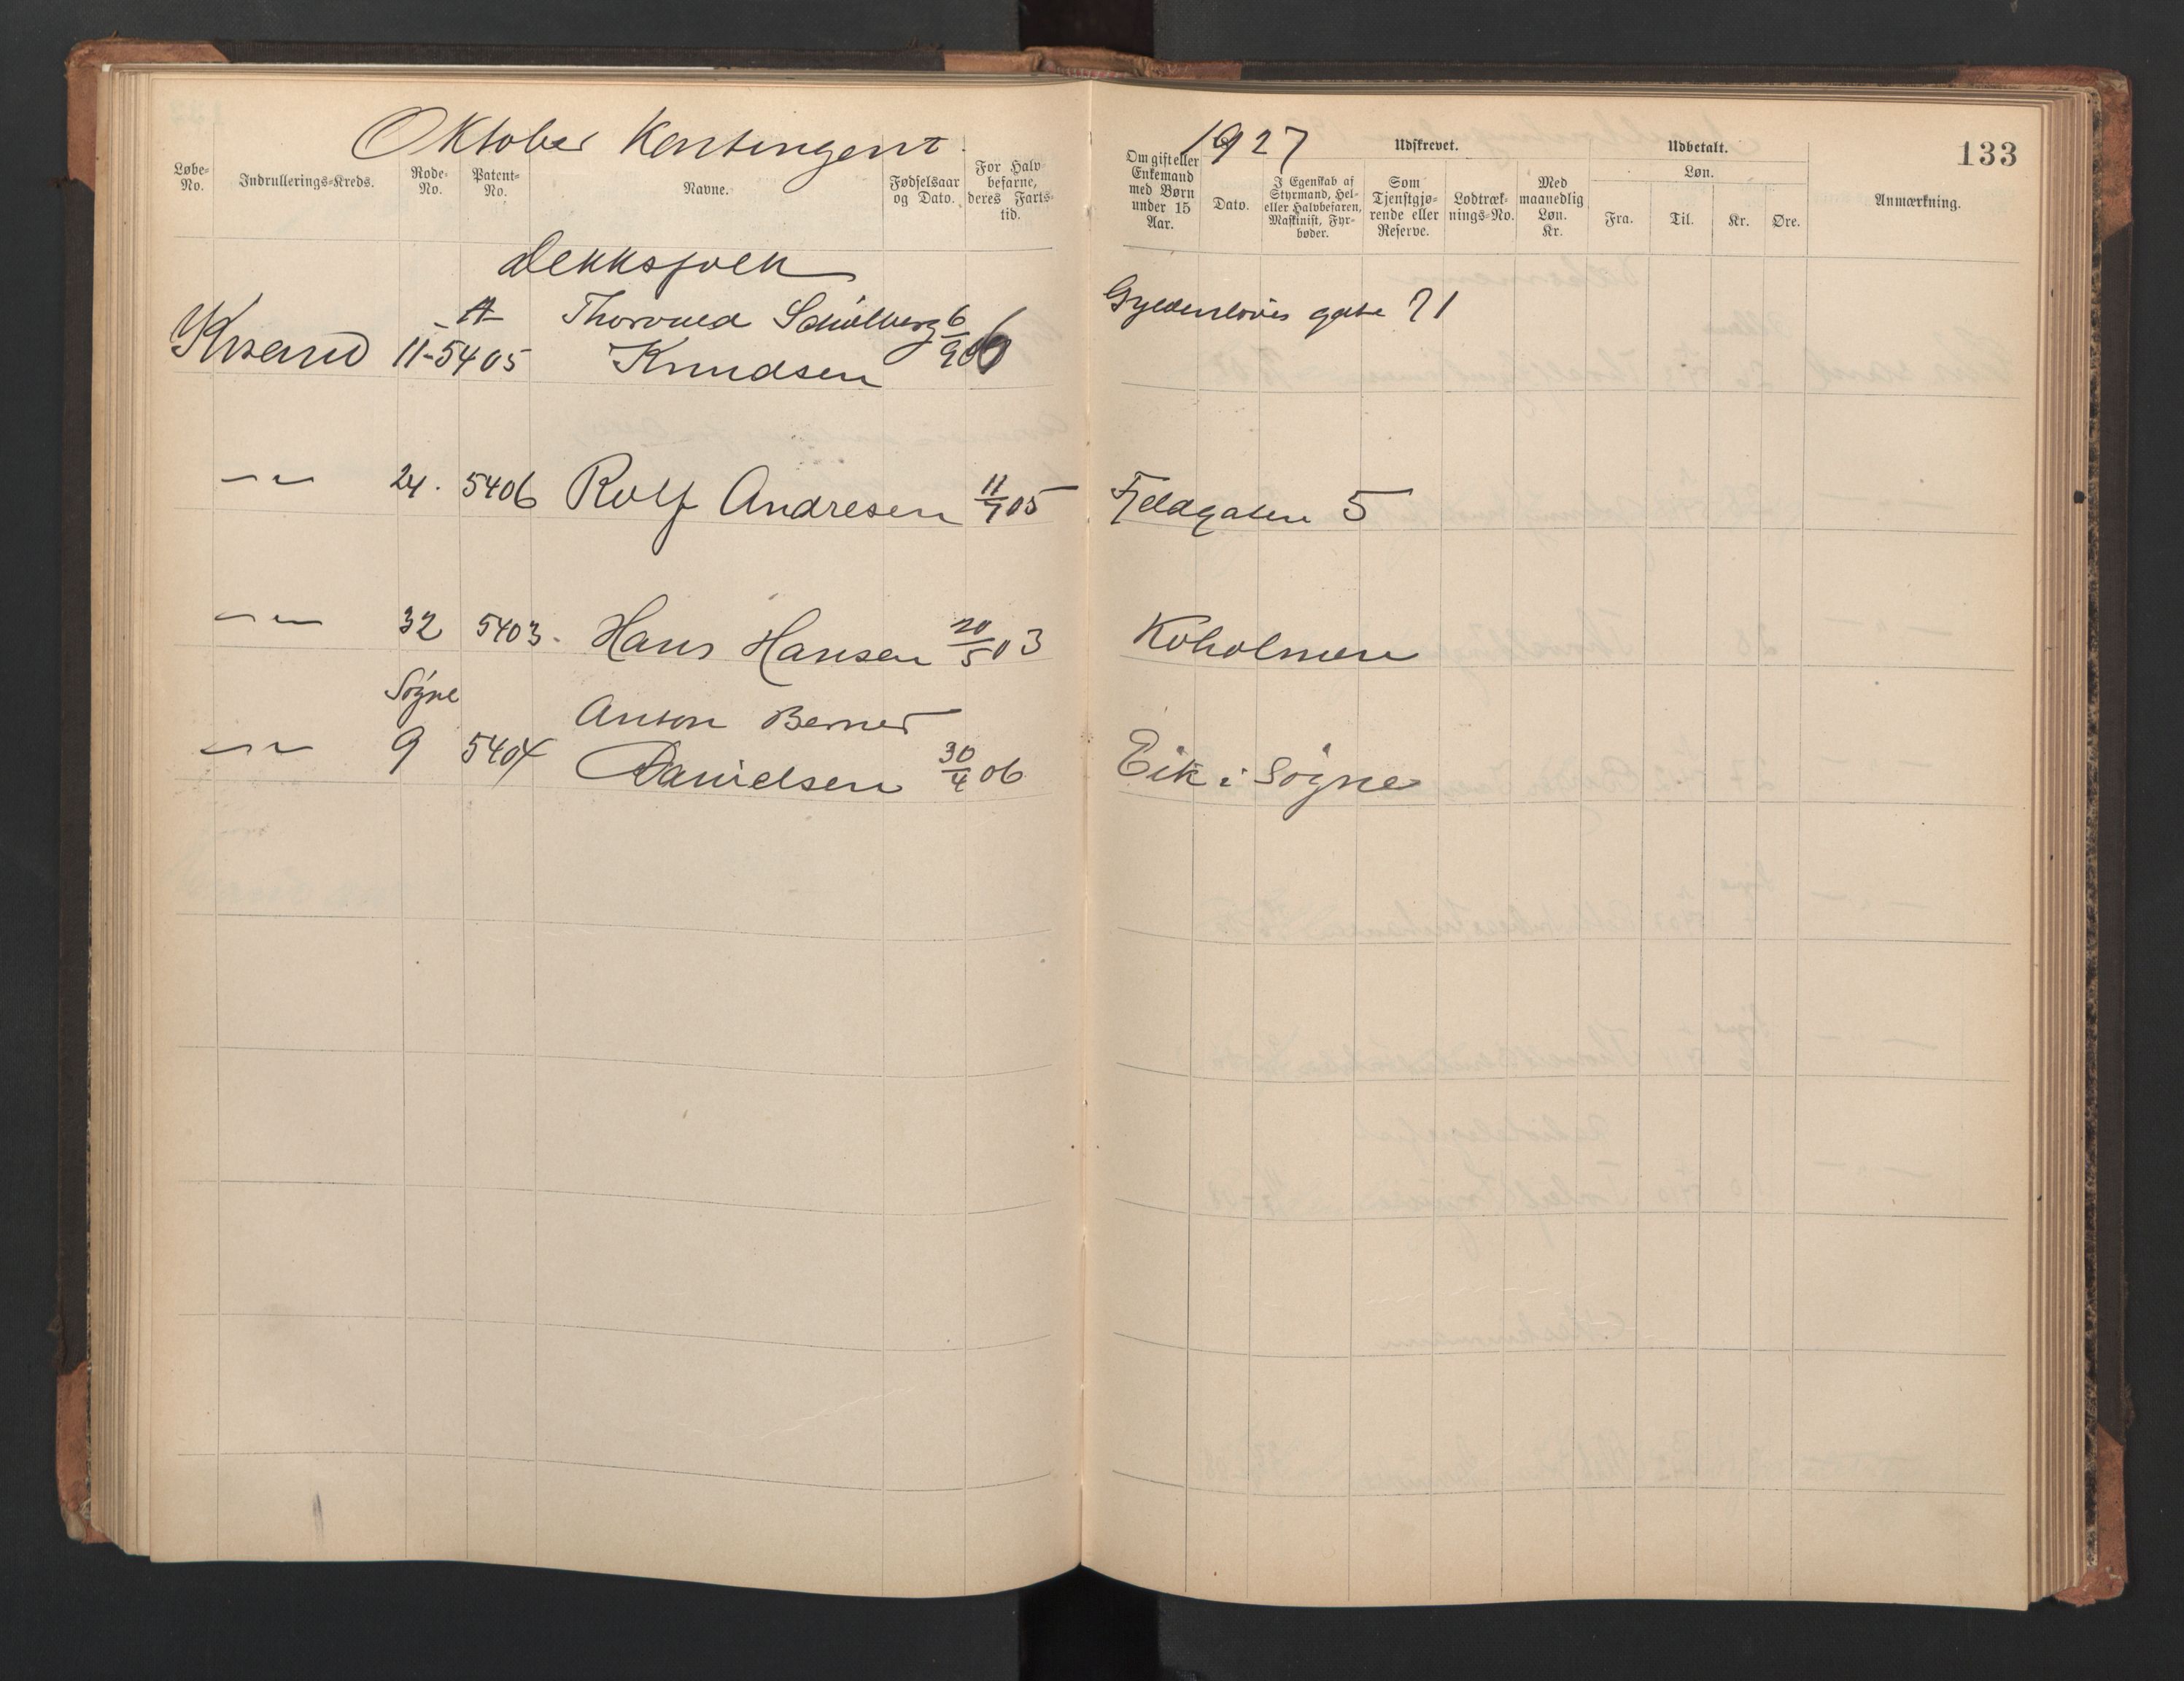 Oktober Kontingent 1927
133
Løbe-No.
Indrullerings-Kreds.
Rode-No.
Patent-No.
Navne.
Fødselsaar og Dato.
For Halvbefarne, deres Fartstid.
Om gift eller Enkemand med Børn under 15 Aar.
Udskrevet.
Dato.
I Egenskab af Styrmand, Hel- eller Halvbefaren, Maskinist, Fyrbøder.
Som Tjenstgjørende eller Reserve.
Lodtræknings-No.
Med maanedlig Løn. Kr.
Udbetalt.
Løn.
Fra.
Til.
Kr.
Øre.
Anmærkning.
Dekksfolk
A Thorvald 6 Gyldenløves gate 71
Krsand 11- 5405 Knudsen 9 06
-"- 24. 5406 Rolf Andresen 11/7 05 Fjeldgaten 5
-"- 32 5403. Hans Hansen 20/5 03 Koholmen
Søgne Anton Berner
-"- 9 5404 Danielsen 30/4 06 Eik i Søgne